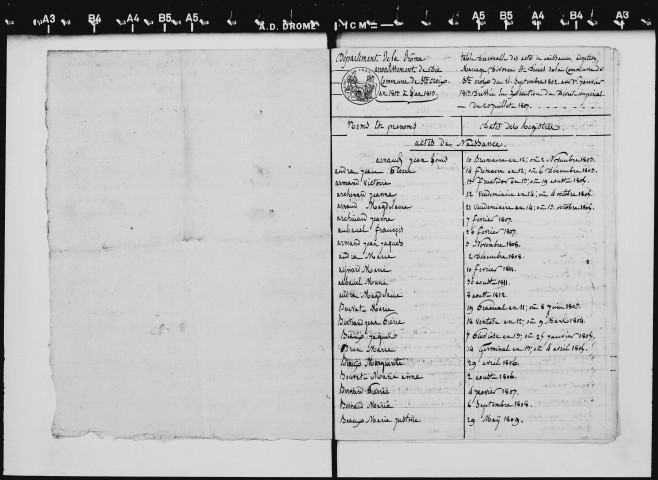 A3 B4 A4 B5 A5 A.D. DROME 1 CM A5 B5 A4 B4 A3
Département de la Drôme
arrondissement de Die
Commune de Ste Croix
an 1802 à l'an 1813.
table décennalle des actes de naissance,
Mariage, Divorce et Décès de la Commune de
Ste croix du Septembre 1802 au 1er janvier
1813 Dressée en exécution du Décret impérial
du 20 juillet 1807.
Noms et prenoms Dates des Registres
actes de Naissance.
arnaud jean Louis 10 Brumaire an 12; ou 2 Novembre 1803.
andra jean Pierre 14 frimaire an 12; ou 6 Décembre 1803.
armand Victoire fructidor an 13; ou 19 aoust 1805.
archinard jeanne 12 Vendemiaire an 14; ou 4 octobre 1805.
arnaud Magdelaine 21 Vendemiaire an 14; ou 13 octobre 1805.
archinard jeanne 7 fevrier 1807.
aubanel François 26 fevrier 1807.
armand jean jaques 5 Novembre 1808.
andra Marie 2 Décembre 1808.
aymard Marie 10 fevrier 1811.
aubanel Marie 30 aoust 1811.
andra Magdelaine 8 aoust 1812.
Bouvat Marie 19 Prairial an 11; ou 8 juin 1803.
Bertrand jean Pierre 18 Ventose an 12; ou 9 Mars 1804.
Beaup jaques 7 Pluviose an 13; ou 27 janvier 1805.
Brun Marie 14 Germinal an 13; ou 4 avril 1805.
Beaup Marguerite 29 avril 1806.
Bouvat Marie anne 2 aoust 1806.
Bernard Pierre 4 janvier 1807.
Bernard Marie 6 Septembre 1808.
Beaup Marie justine 29 May 1809.